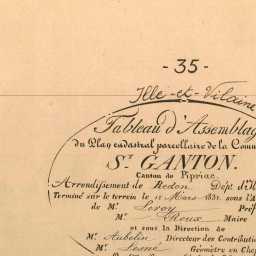 - 35 -
Ille-et-Vilaine
Tableau d'Assemblag
du Plan cadastral parcellaire de la Comm
ST. GANTON.
Canton de Pipriac
Arrondissement de Redon, Dépt d'Il
Terminé sur le terrein le 12 Mars 1831. sous l'A
de Mr. Leroy Pré
Mr. Maire
et sous la Direction de
Mr. Aubelin Directeur des Contribution
Mr. Géomètre en Chef